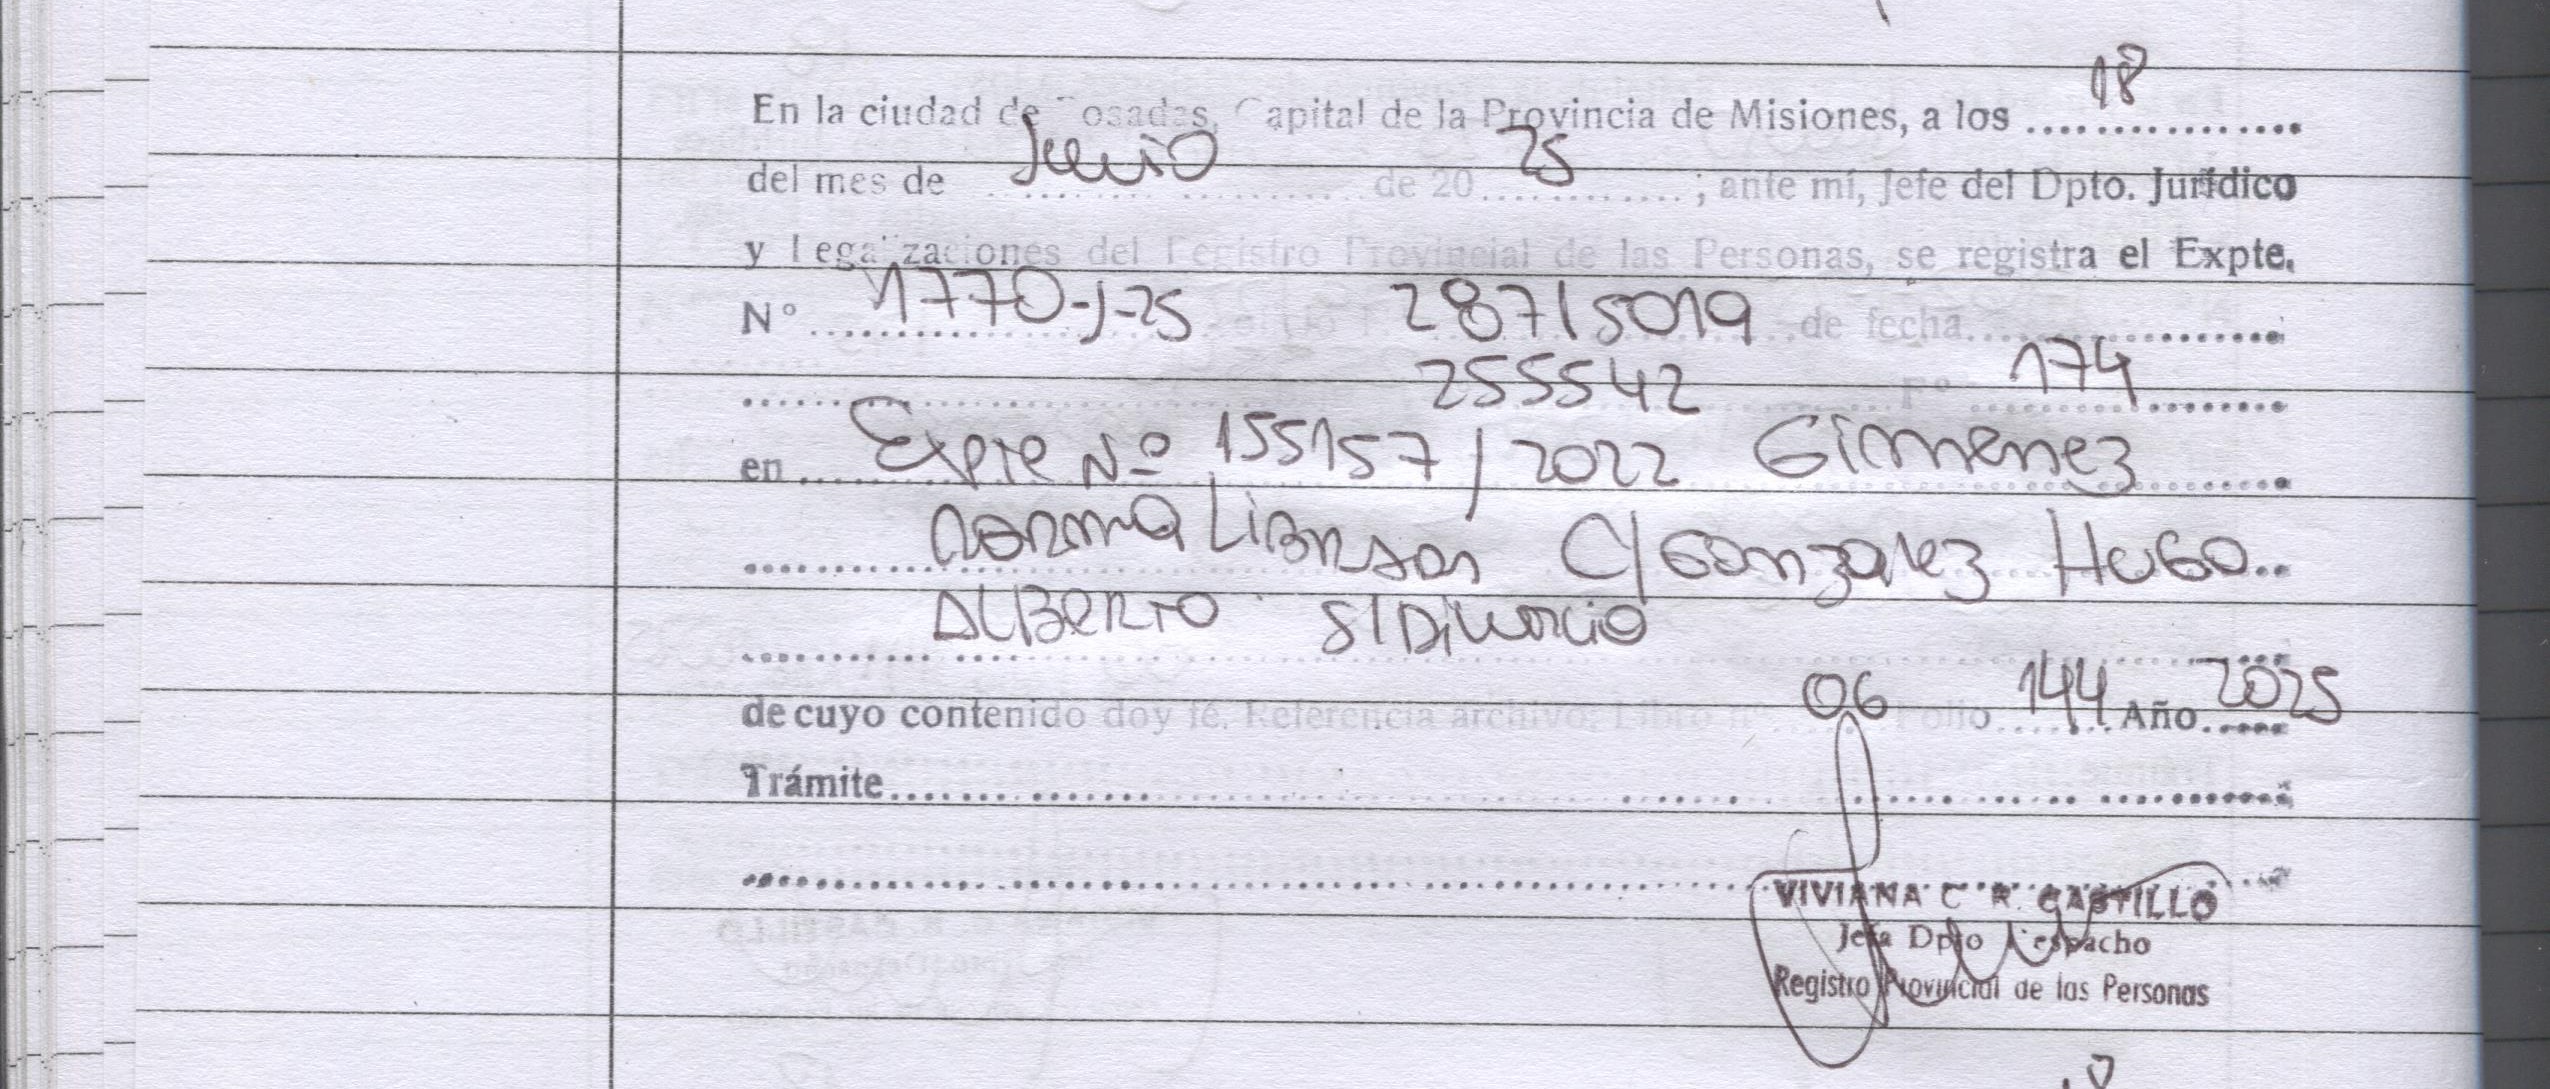 18
En la ciudad de Posadas, Capital de la Provincia de Misiones, a los
del mes de Junio de 20 25 ; ante mi, Jefe del Dpto. Jurídico
y Legalizaciones del Registro Provincial de las Personas, se registra el Expte.
Nº 1770-J-25 287/5019 de fecha
255542 Fº 174
en Expte Nº 155157/2022 Gimenez
norma C/ Gonzalez Hugo
Alberto S/ Divorcio
de cuyo contenido doy fé. Referencia archivo: Libro nº 06 Folio 144 Año 2025
Trámite
VIVIANA C. R. CASTILLO
Jefa Dpto Despacho
Registro Provincial de las Personas